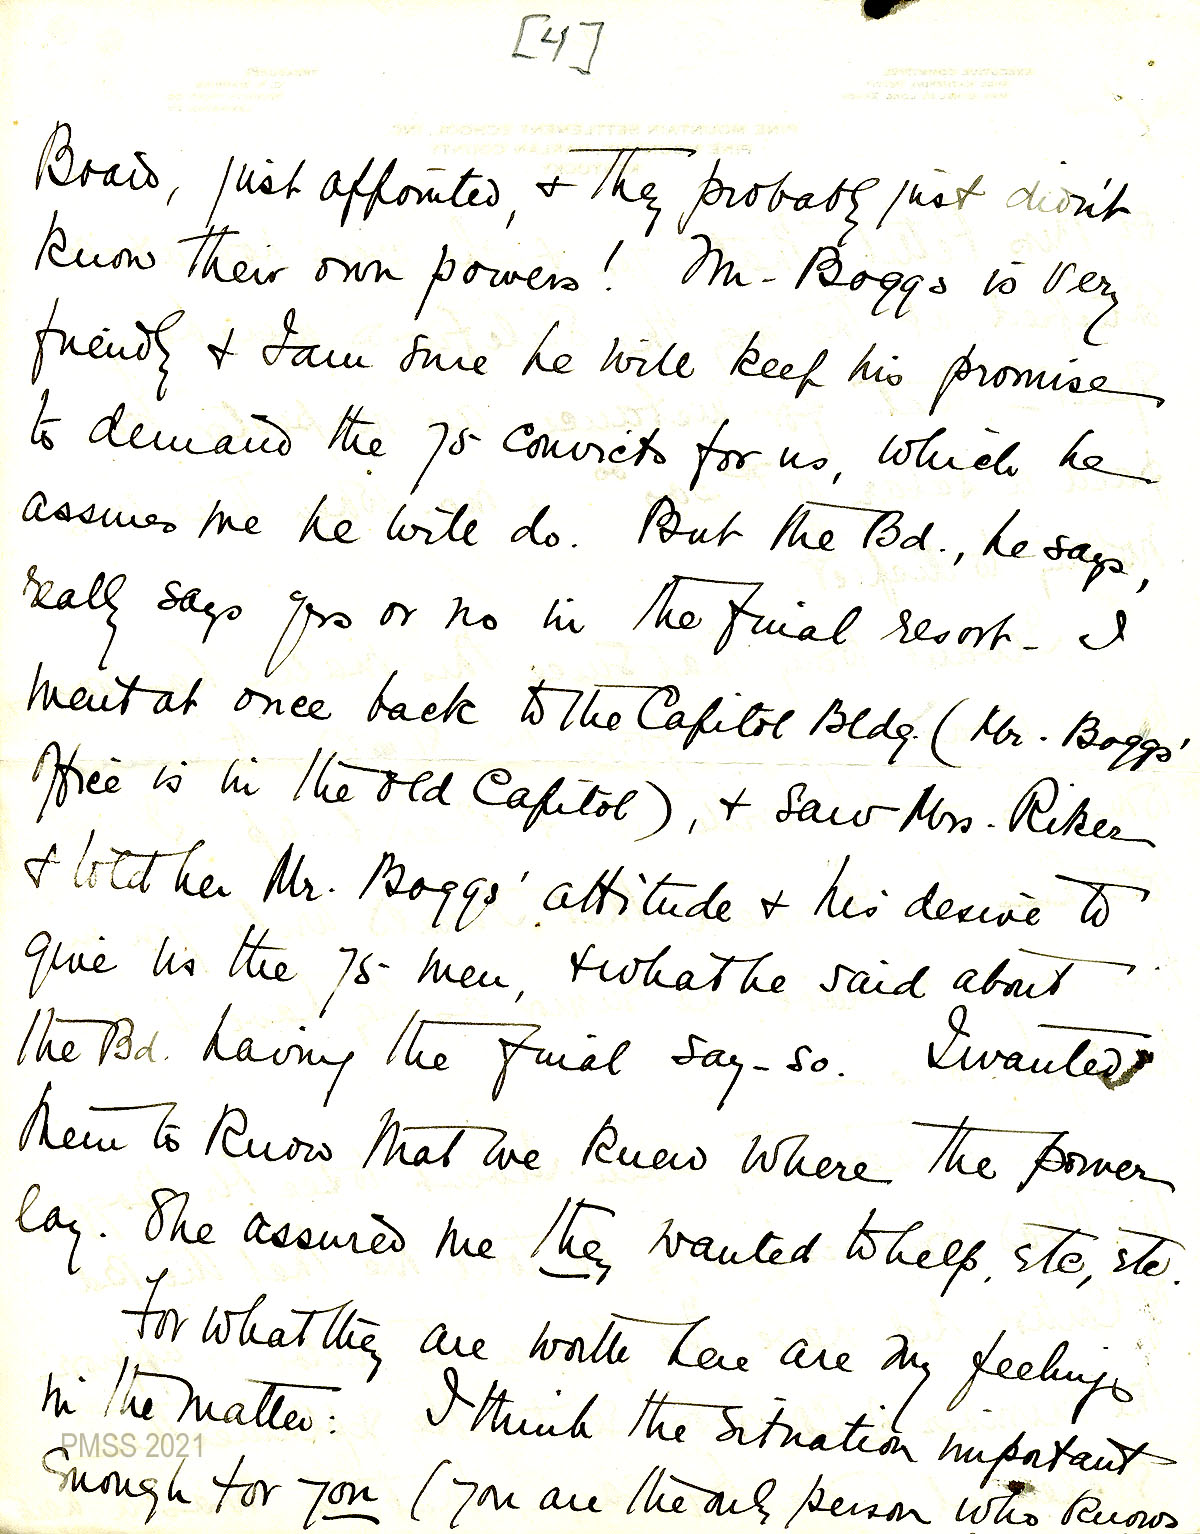 [4]
Board, just appointed, & they probably just didn't
know their own powers! Mr. Boggs is very
friendly & I am sure he will keep his promise
to demand the 75 convicts for us, which he
assures me he will do. But the Bd., he says,
really says yes or no in the final resort. I
went at once back to the Capitol Bldg. (Mr. Boggs'
office is in the old Capitol), & saw Mrs. Riker
& told her Mr. Boggs' attitude & his desire to
give us the 75 men, & what he said about
the Bd. having the final say-so. I wanted
them to know that we knew where the power
lay. She assured me they wanted to help, etc, etc.
For what they are worth here are my feelings
in the matter: I think the situation important
enough for you (you are the only person who knows
PMSS 2021